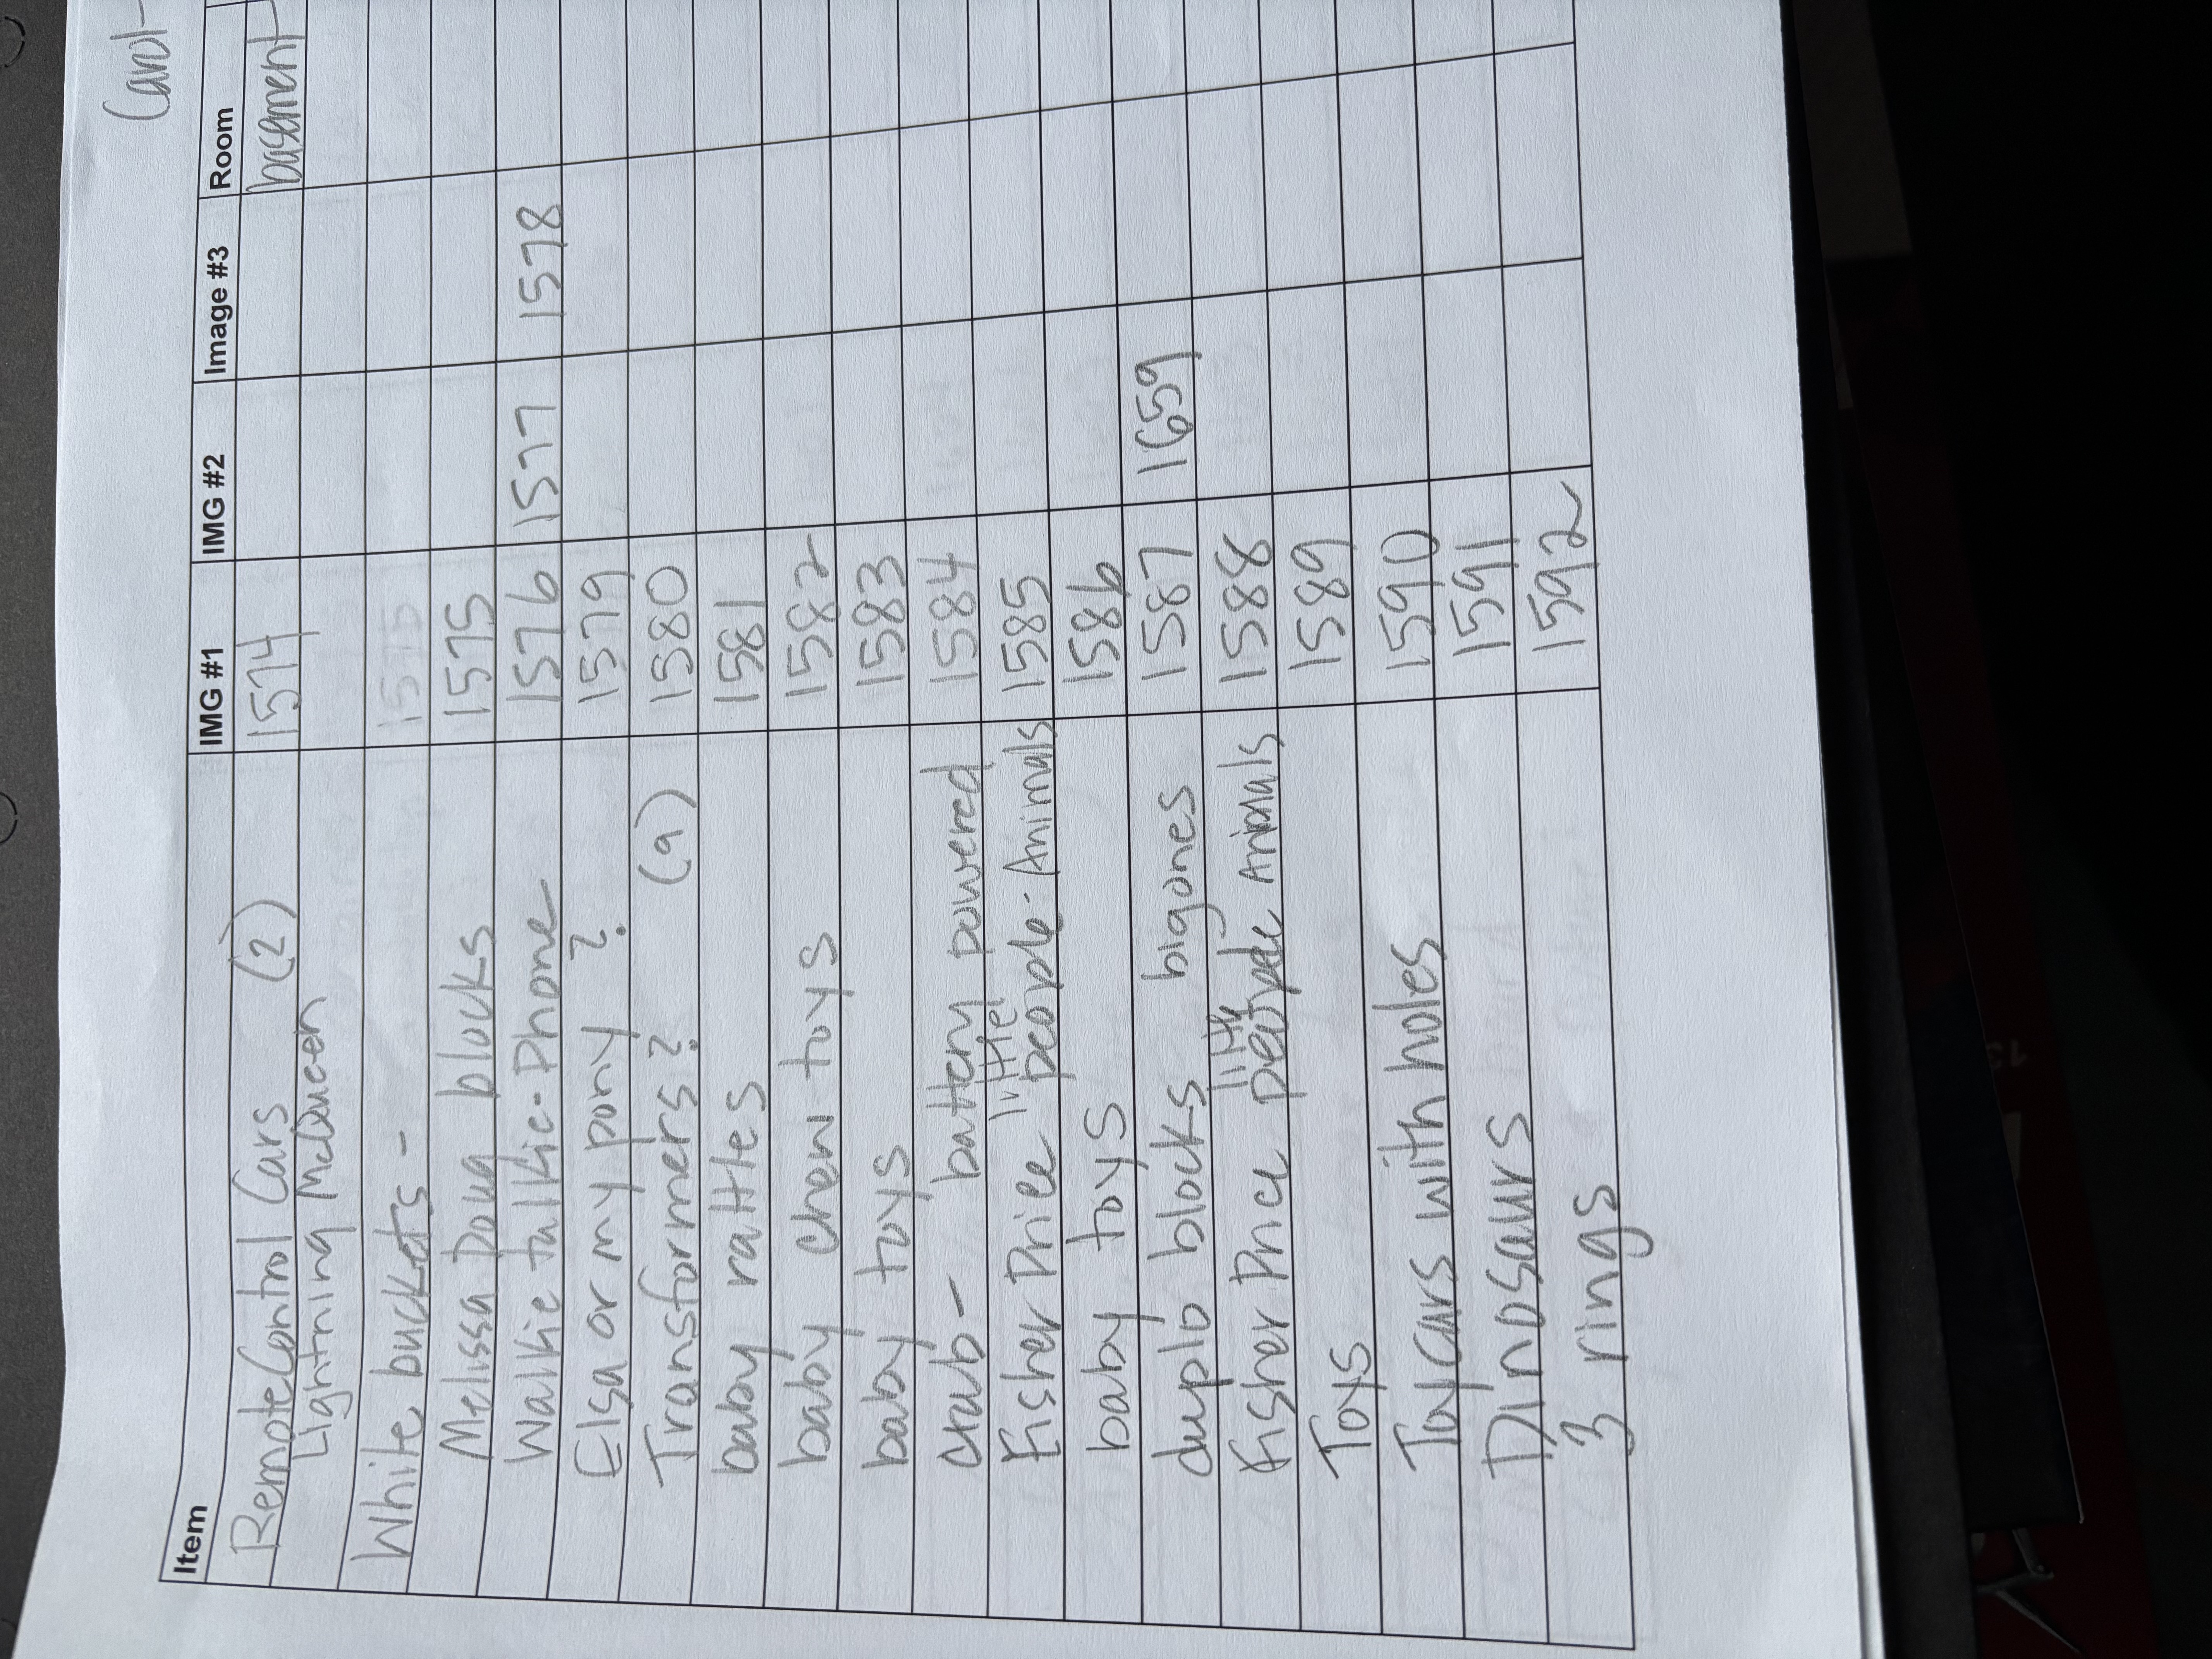 Carol-
Item IMG #1 IMG #2 Image #3 Room
Remote Control Cars (2) 1574 basement
Lightning McQueen
White buckets - 1575
Melissa Doug blocks 1575
Walkie talkie-Phone 1576 1577 1578
Elsa or my pony ? 1579
Transformers ? (9) 1580
baby rattles 1581
baby chew toys 1582
baby toys 1583
crab - battery powered 1584
Fisher Price little people - Animals 1585
baby toys 1586
duplo blocks big ones 1587 1659
Fisher Price little people Animals 1588
Toys 1589
Toy cars with holes 1590
Dinosaurs 1591
3 rings 1592